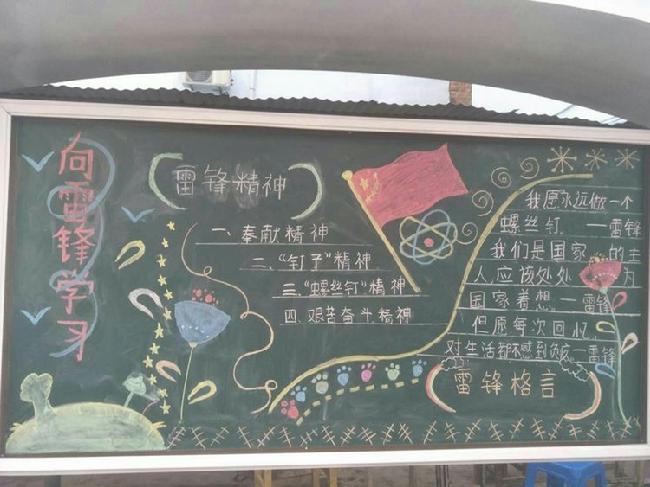 向雷锋学习
雷锋精神
一、奉献精神
二、“钉子”精神
三、“螺丝钉”精神
四、艰苦奋斗精神
我愿永远做一个
螺丝钉——雷锋
我们是国家的主
人,应该处处为
国家着想——雷锋
但愿每次回忆,
对生活都不感到负疚—雷锋
雷锋格言